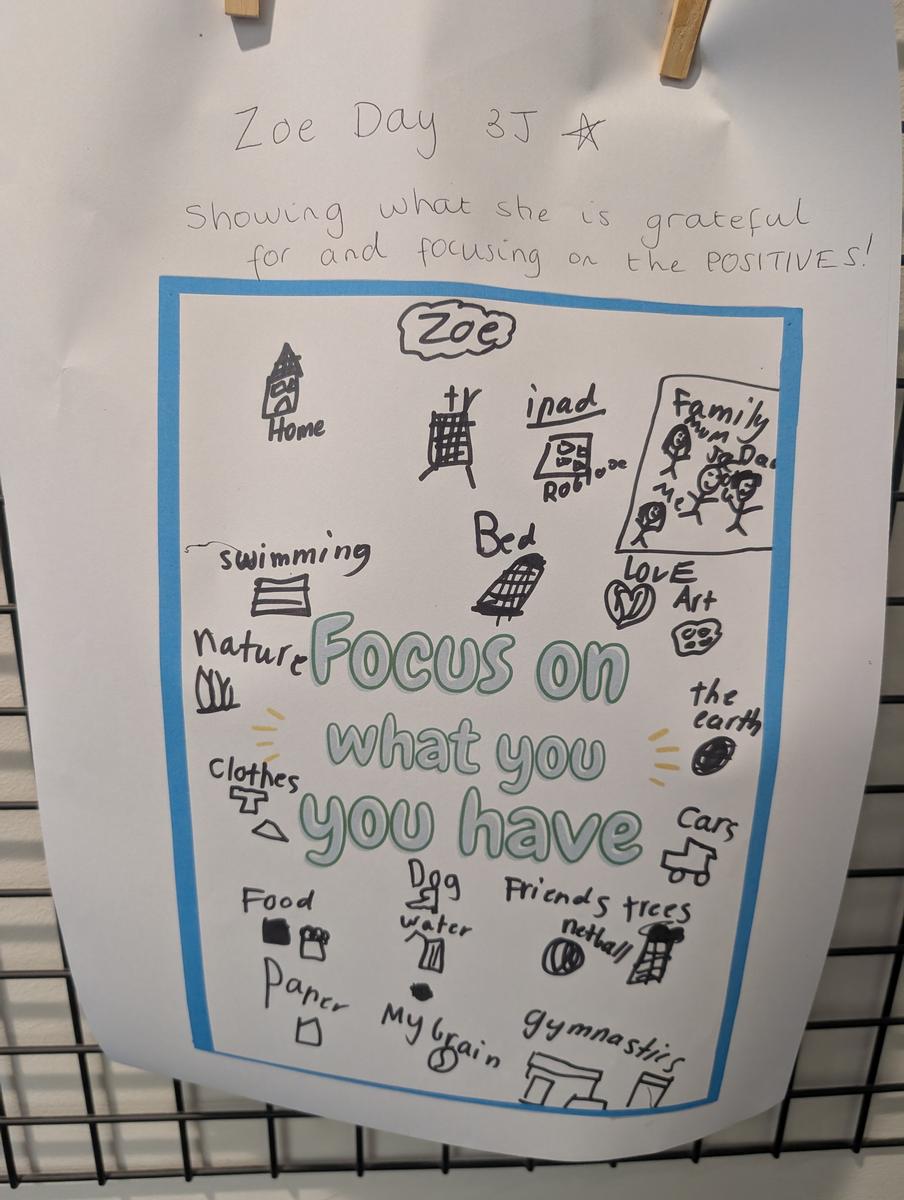 Zoe Day 3J
Showing what she is grateful
for and focusing on the POSITIVES!
Zoe
Home
tv
ipad
Roblox
Family
Mum
Dad
Me
swimming
Bed
LOVE
Art
nature
Focus on
what you
you have
the
earth
Clothes
Cars
Food
Dog
water
Friends
trees
netball
Paper
My brain
gymnastics